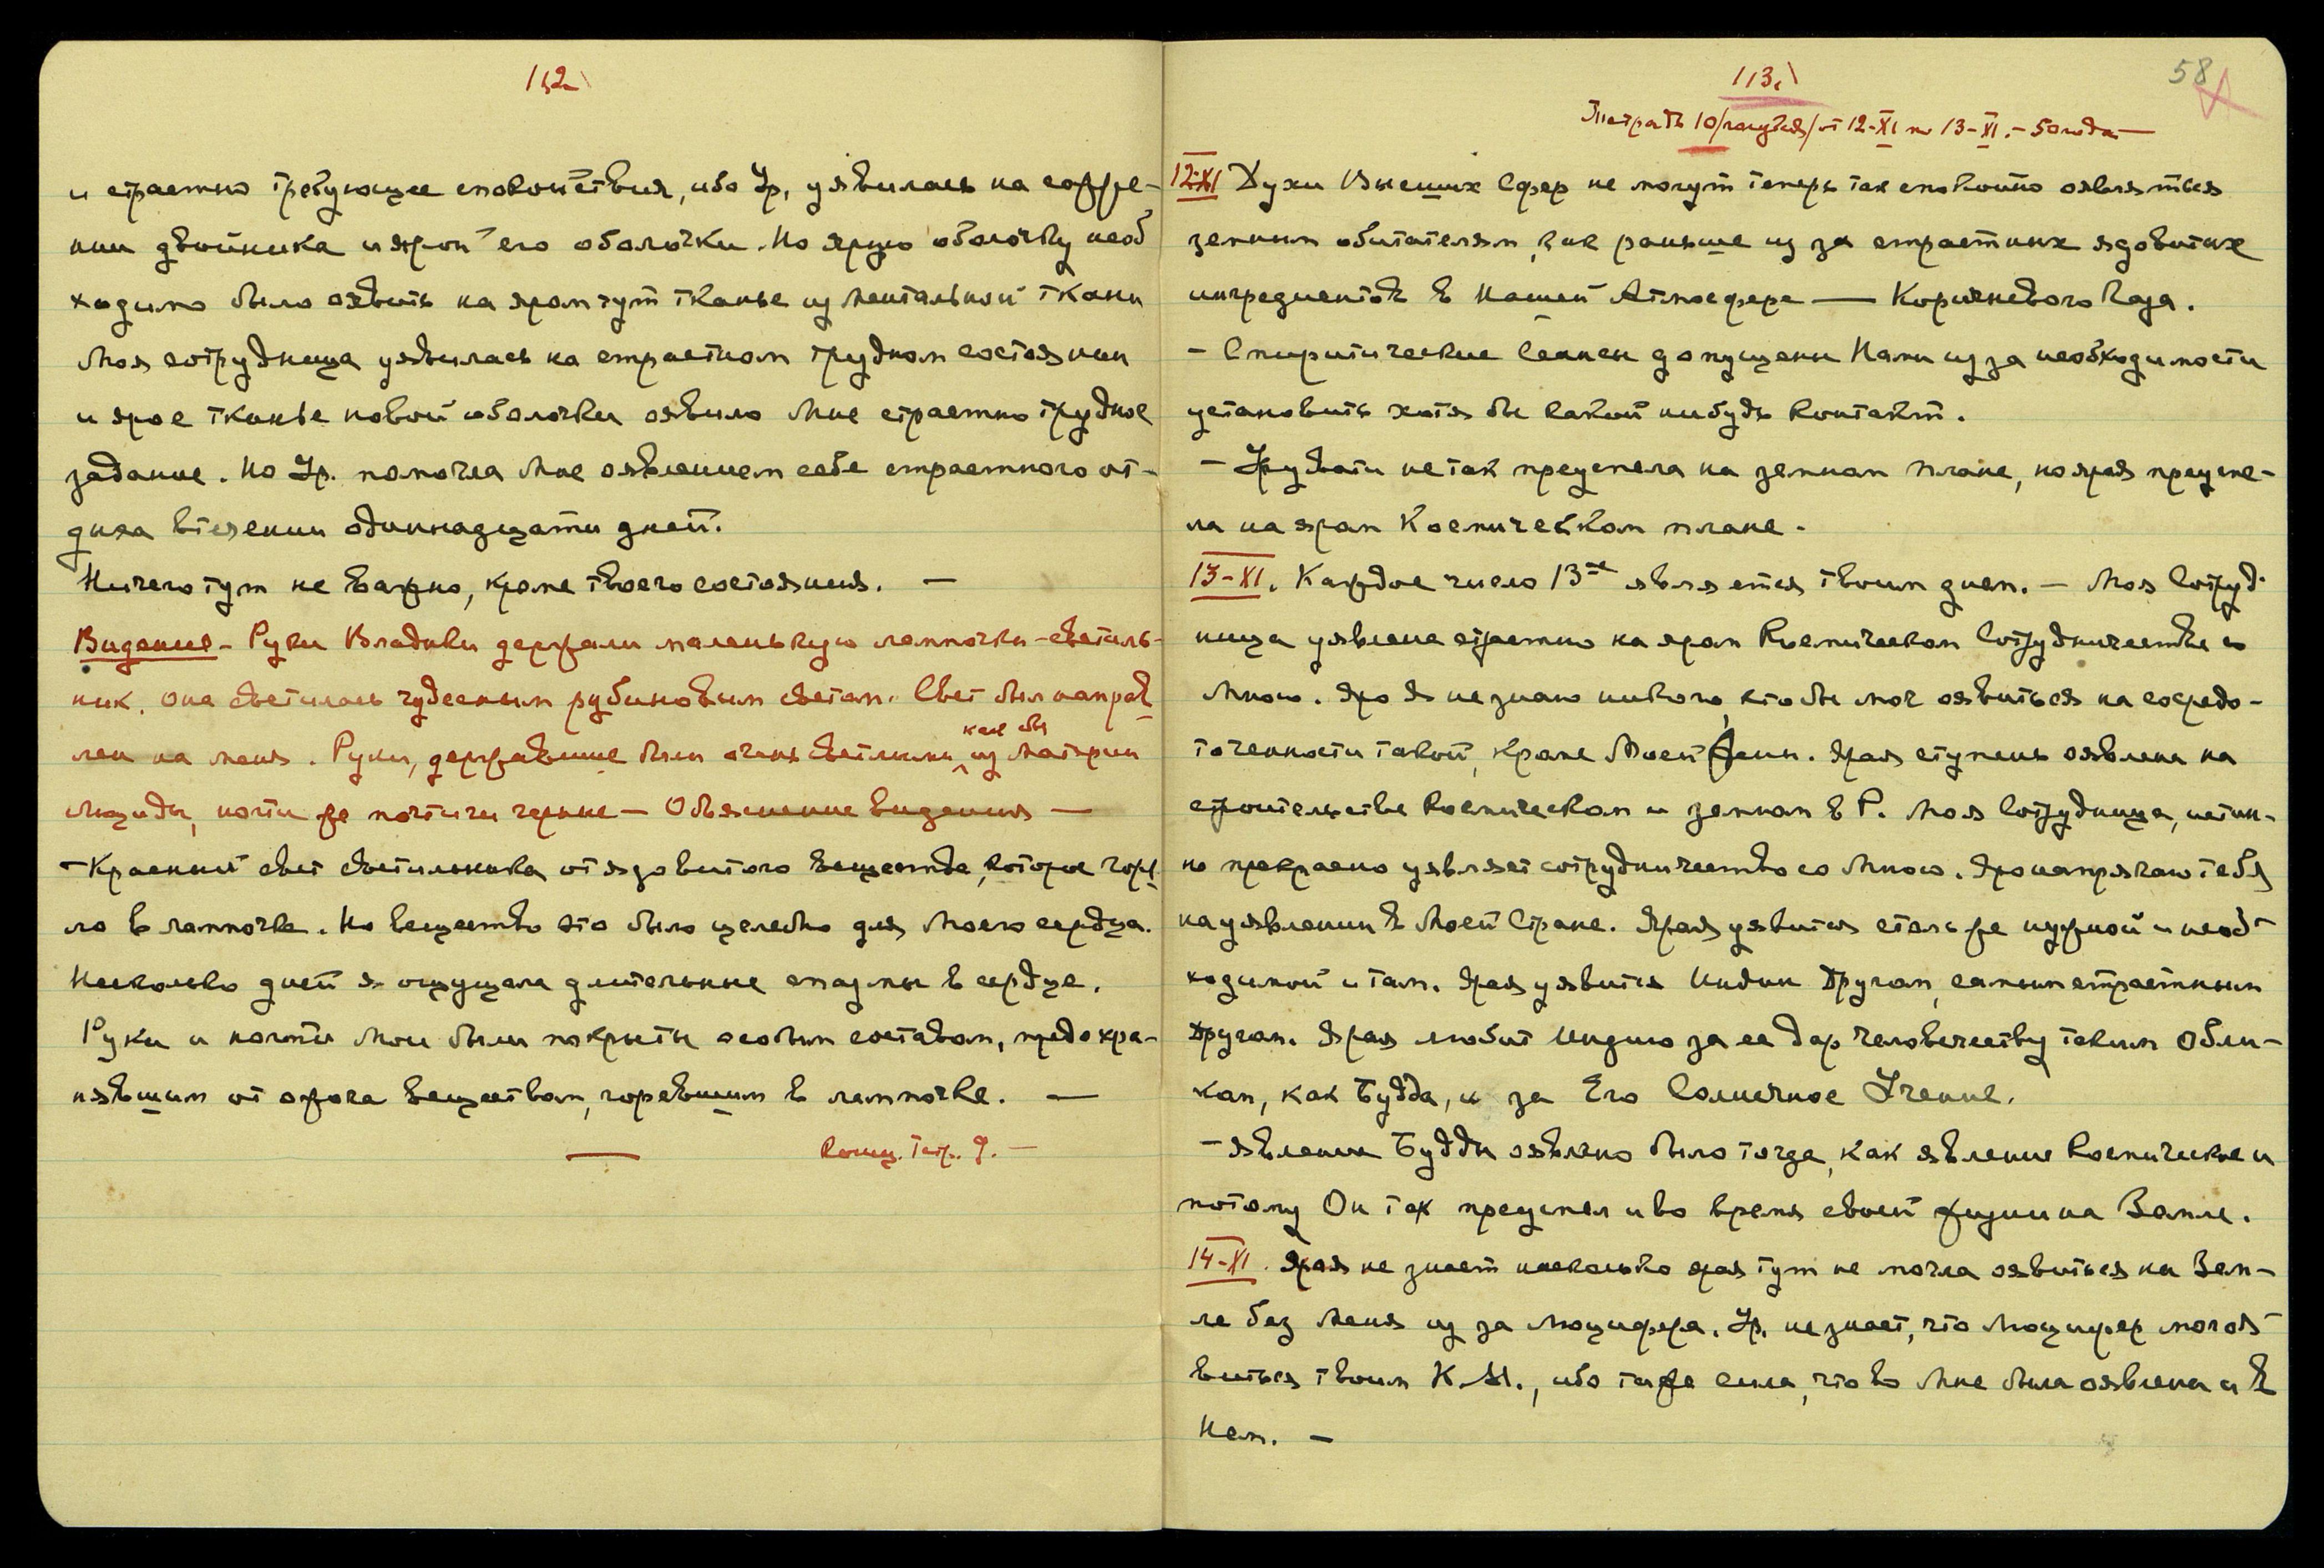 112
и страстно требующее спокойствия, ибо Ур. уявилась на сожже-
нии двойника и ярой его оболочки. Но ярую оболочку необ
ходимо было оявить на яром тут тканье из ментальной ткани
Моя сотрудница уявилась на страстном трудном состоянии
и ярое тканье новой оболочки оявило Мне страстно трудное
задание. Но Ур. помогла Мне оявлением себе страстного от-
дыха в течении одиннадцати дней.
Ничего тут не важно, кроме твоего состояния. —
Видение - Руки Владыки держали маленькую лампочку-светиль-
ник. Она светилась чудесным рубиновым светом. Свет был направ
лен на меня. Руки, державшие были очень светлыми, как бы из Материи
Люциды, ногти же почти чи черные — Объяснение видения —
- Красный свет светильника от ядовитого вещества, которое горе
ло в лампочке. Но вещество это было целебно для Моего сердца.
Несколько дней я ощущала длительные спазмы в сердце.
Руки и ногти Мои были покрыты особым составом, предохра-
нявшим от ожога веществом, горевшим в лампочке. —
— Конец. Тетр. 9. —
113.
58
Тетрадь 10 от 12-XI по 13-XI. - 50 года —
12-XI Духи Высших Сфер не могут теперь так спокойно оявляться
земным обитателям, как раньше из за страстных ядовитых
ингредиентов в Нашей Атмосфере — Коричневого Газа.
- Спиритические Сеансы допущены Нами из за необходимости
установить хотя бы какой нибудь контакт.
- Урувати не так преуспела на земном плане, но яро преуспе-
ла на яром Космическом плане.
13-XI. Каждое число 13-ое является твоим днем. - Моя Сотруд
ница уявлена страстно на яром Космическом Сотрудничестве со
Мною. Яро Я не знаю никого, кто бы мог оявиться на сосредо-
точенности такой, кроме Моей. Ярая ступень оявлена на
строительстве Космическом и земном в Р. Моя Сотрудница, истин-
но прекрасно уявляет сотрудничество со Мною. Яро напрягаю тебя
на уявлении в Моей Стране. Ярая уявится столь же нужной и необ-
ходимой и там. Ярая уявится Индии Другом, самым страстным
Другом. Ярая любит Индию за ее дар человечеству таким Обли-
ком, как Будда, и за Его Солнечное Учение.
- Явление Будды оявлено было тогда, как явление Космическое и
потому Он так преуспел и во время своей жизни на Земле.
14-XI. Ярая не знает насколько ярая тут не могла оявиться на Зем-
ле без Меня из за Люцифера. Ур. не знает, что Люцифер мог оя
виться твоим К.М., ибо та же сила, что во Мне была оявлена и в
Нем. —